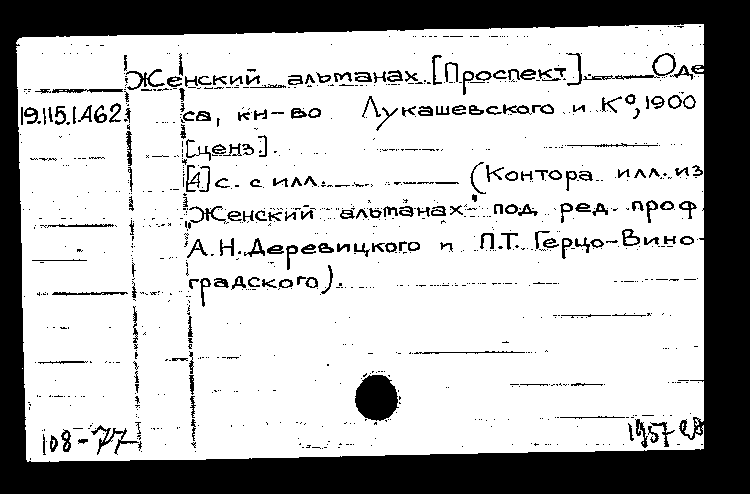 Женский альманах. [Проспект]. Оде
19.115.1.А62. са, кн-во Лукашевского и К°, 1900
[ценз.].
[4] с. с илл. (Контора илл. из
"Женский альманах" под ред. проф.
А. Н. Деревицкого и П. Т. Герцо-Вино-
градского).
108-77 1957